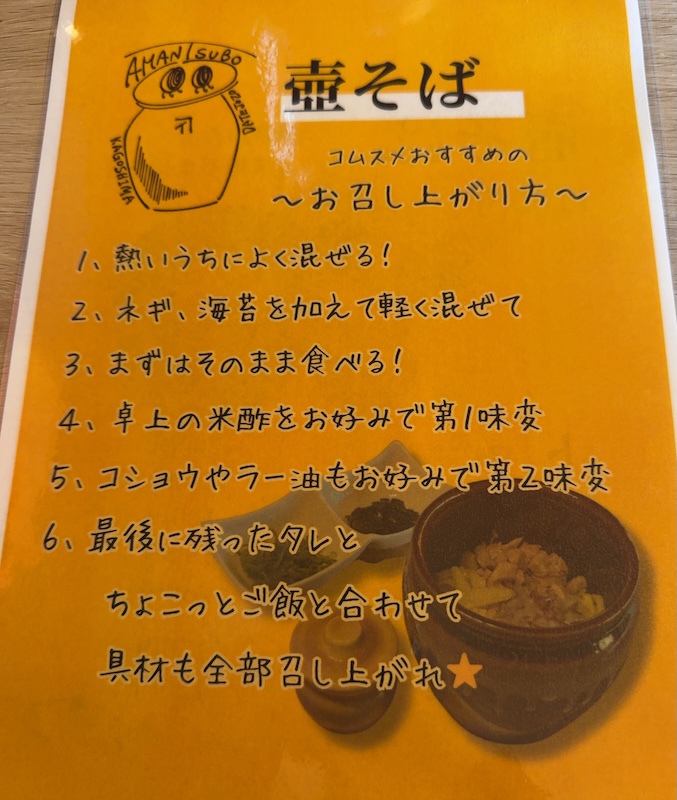 AMANTSUBO
KAGOSHIMA
壺そば
コムスメおすすめの
～お召し上がり方～
1、熱いうちによく混ぜる!
2、ネギ、海苔を加えて軽く混ぜて
3、まずはそのまま食べる!
4、卓上の米酢をお好みで第1味変
5、コショウやラー油もお好みで第2味変
6、最後に残ったタレと
ちょこっとご飯と合わせて
具材も全部召し上がれ★